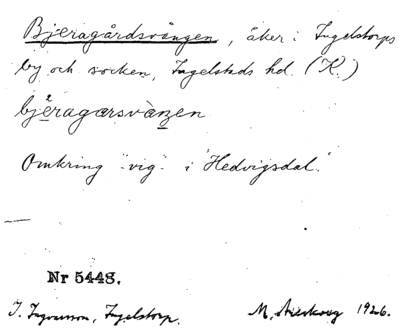 Bjeragårdsvången, åker i Ingelstorps
by och socken, Ingelstads hd. (K.)
bjèragarsvàŋen
Omkring "vig" i "Hedvigsdal".
Nr 5448.
J. Ingvarsson, Ingelstorp.
M. 1926.